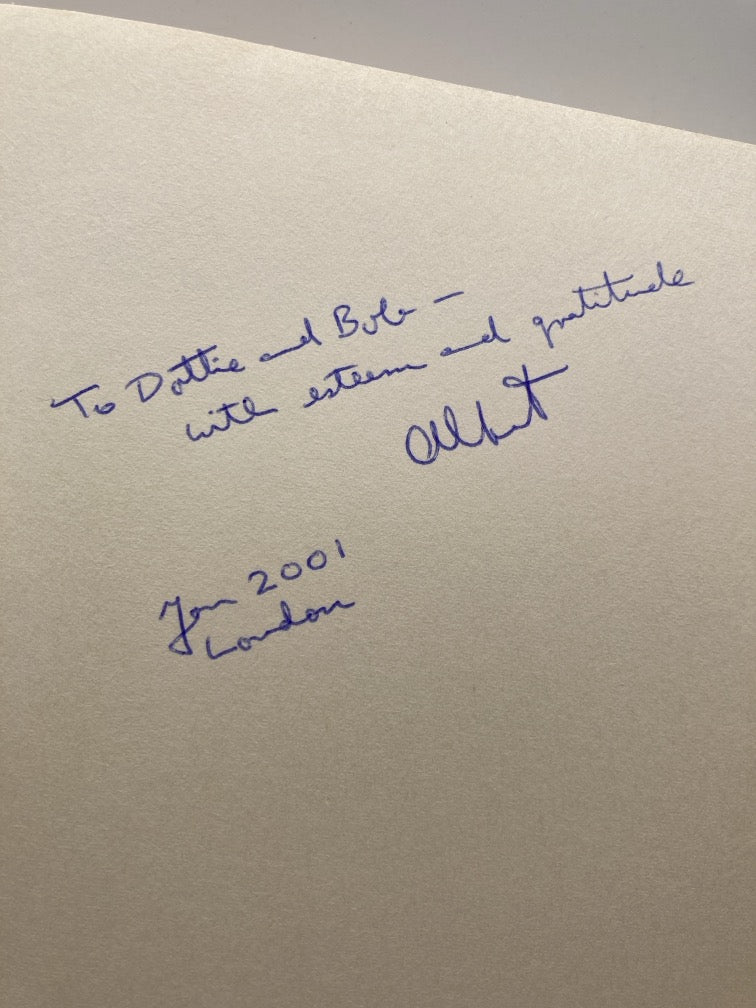 To Dottie and Bob —
with esteem and gratitude
Albert
Jan 2001
London